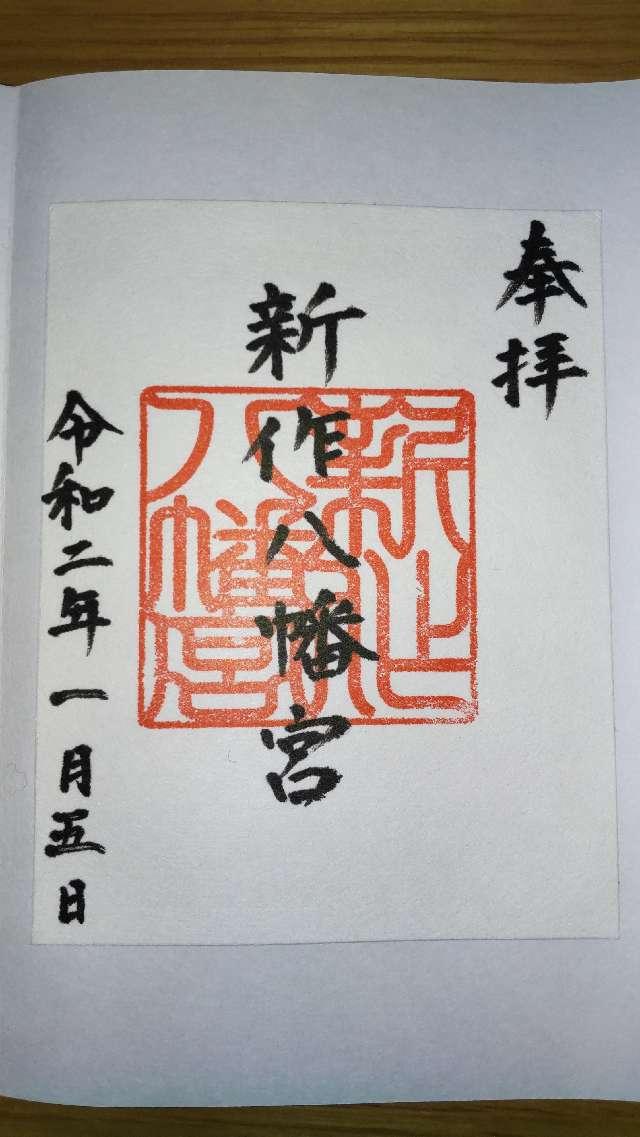 奉拝
新作八幡宮
令和二年一月五日